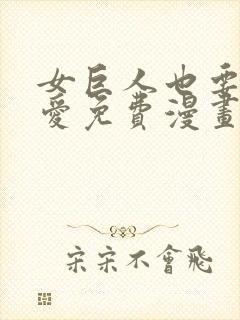 女巨人也要
愛免費漫畫
宋宋不會飛